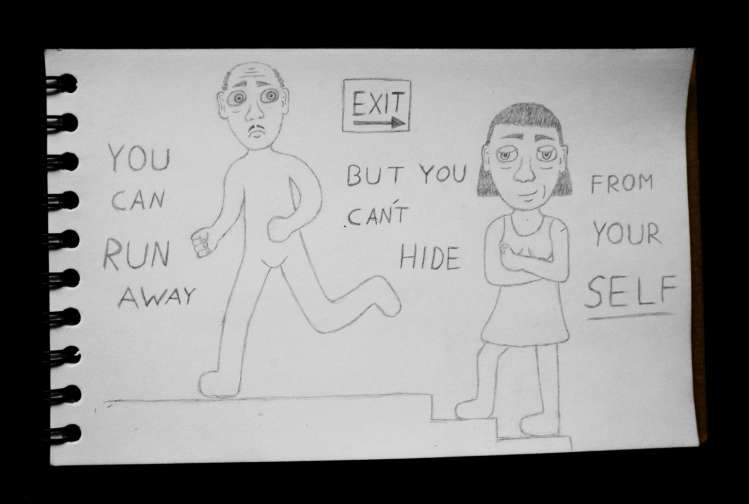 YOU
CAN
RUN
AWAY
EXIT
BUT YOU
CAN'T
HIDE
FROM
YOUR
SELF